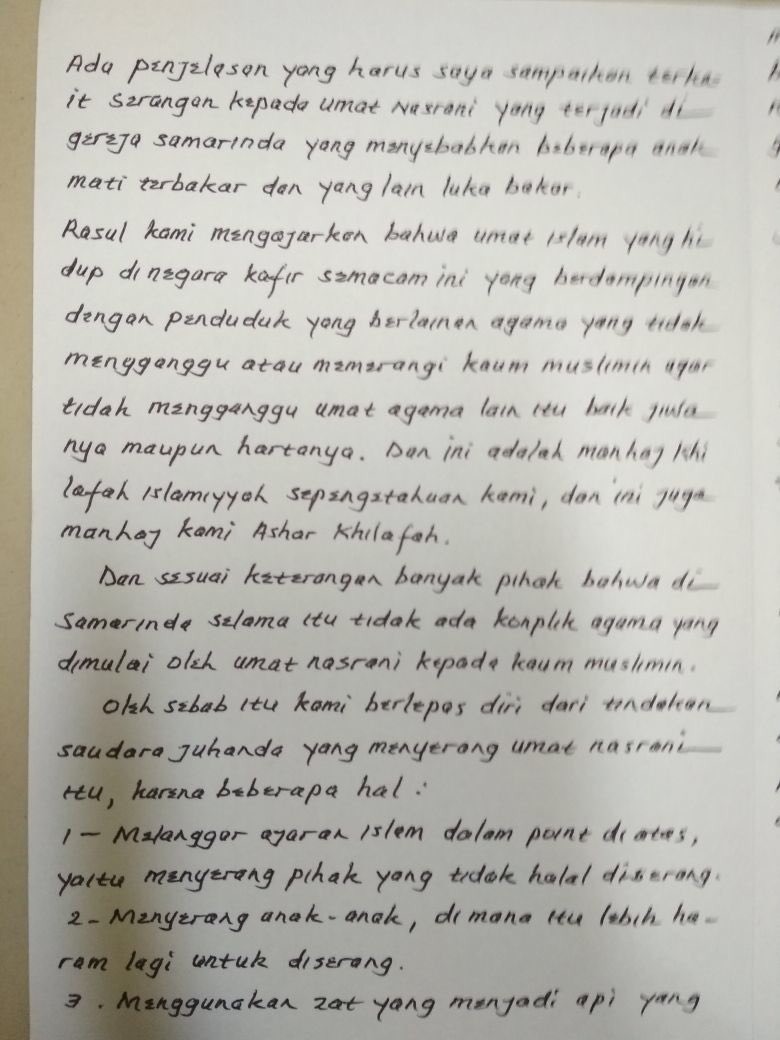 Ada penjelasan yang harus saya sampaikan terka
it serangan kepada umat Nasrani yang terjadi di
gereja samarinda yang menyebabkan beberapa anak
mati terbakar dan yang lain luka bakar.
Rasul kami mengajarkan bahwa umat islam yang hi
dup di negara kafir semacam ini yang berdampingan
dengan penduduk yang berlainan agama yang tidak
mengganggu atau memerangi kaum muslimin agar
tidak mengganggu umat agama lain itu baik jiwa
nya maupun hartanya. Dan ini adalah manhaj khi
lafah islamiyyah sepengetahuan kami, dan ini juga
manhaj kami Ashar Khilafah.
Dan sesuai keterangan banyak pihak bahwa di
Samarinda selama itu tidak ada konplik agama yang
dimulai oleh umat nasrani kepada kaum muslimin.
Oleh sebab itu kami berlepas diri dari tindakan
saudara Juhanda yang menyerang umat nasrani
itu, karena beberapa hal :
1 - Melanggar ajaran Islam dalam point di atas,
yaitu menyerang pihak yang tidak halal diserang.
2 - Menyerang anak-anak, di mana itu lebih ha-
ram lagi untuk diserang.
3 . Menggunakan zat yang menjadi api yang